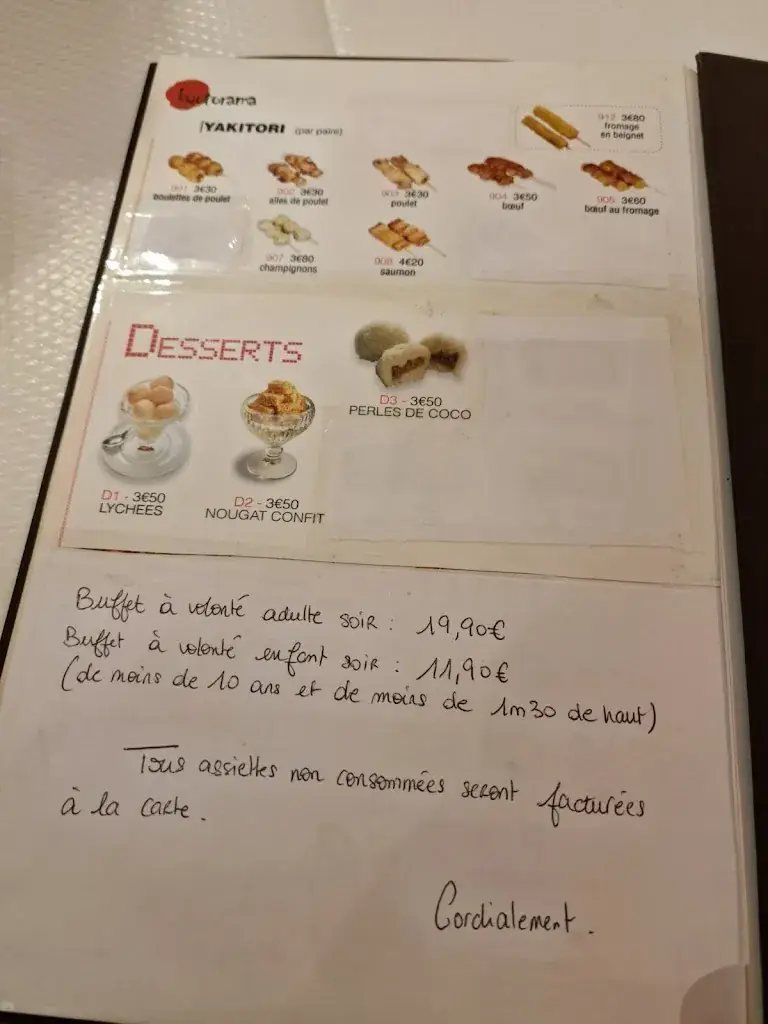 YAKITORI (par paire)
912 3€80
fromage
en beignet
901 3€30
boulettes de poulet
902 3€30
ailes de poulet
903 3€30
poulet
904 3€50
bœuf
905 3€60
bœuf au fromage
907 3€80
champignons
908 4€20
saumon
DESSERTS
D1 - 3€50
LYCHEES
D2 - 3€50
NOUGAT CONFIT
D3 - 3€50
PERLES DE COCO
Buffet à volonté adulte soir : 19,90€
Buffet à volonté enfant soir : 11,90€
(de moins de 10 ans et de moins de 1m30 de haut)
Tous assiettes non consommées seront facturées
à la carte.
Cordialement.